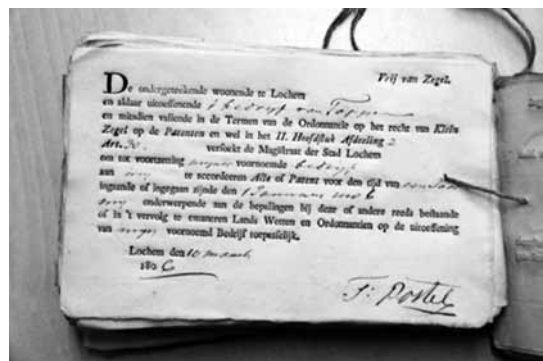 Vrij van Zegel.
De ondergetekende woonende te Lochem
en aldaar uitoeffenende 't bedrijf van Tapper
en mitsdien vallende in de Termen van de Ordonnantie op het recht van Klein
Zegel op de Patenten en wel in het II. Hoofdstuk Afdeeling 2
Art. 30. versoekt de Magistraat der Stad Lochem
om tot voortzetting mijner voornoemde bedrijf
aan mij te accordeeren Akte of Patent voor den tijd van een Jaar
ingaande of ingegaan zijnde den 1 Januari
mij onderwerpende aan de bepalingen bij deze of andere reeds bestaande
of in 't vervolg te emaneren Lands Wetten en Ordonnantien op de uitoeffening
van mijn voornoemd Bedrijf toepasselijk.
Lochem den 10 maart
1806
Postel